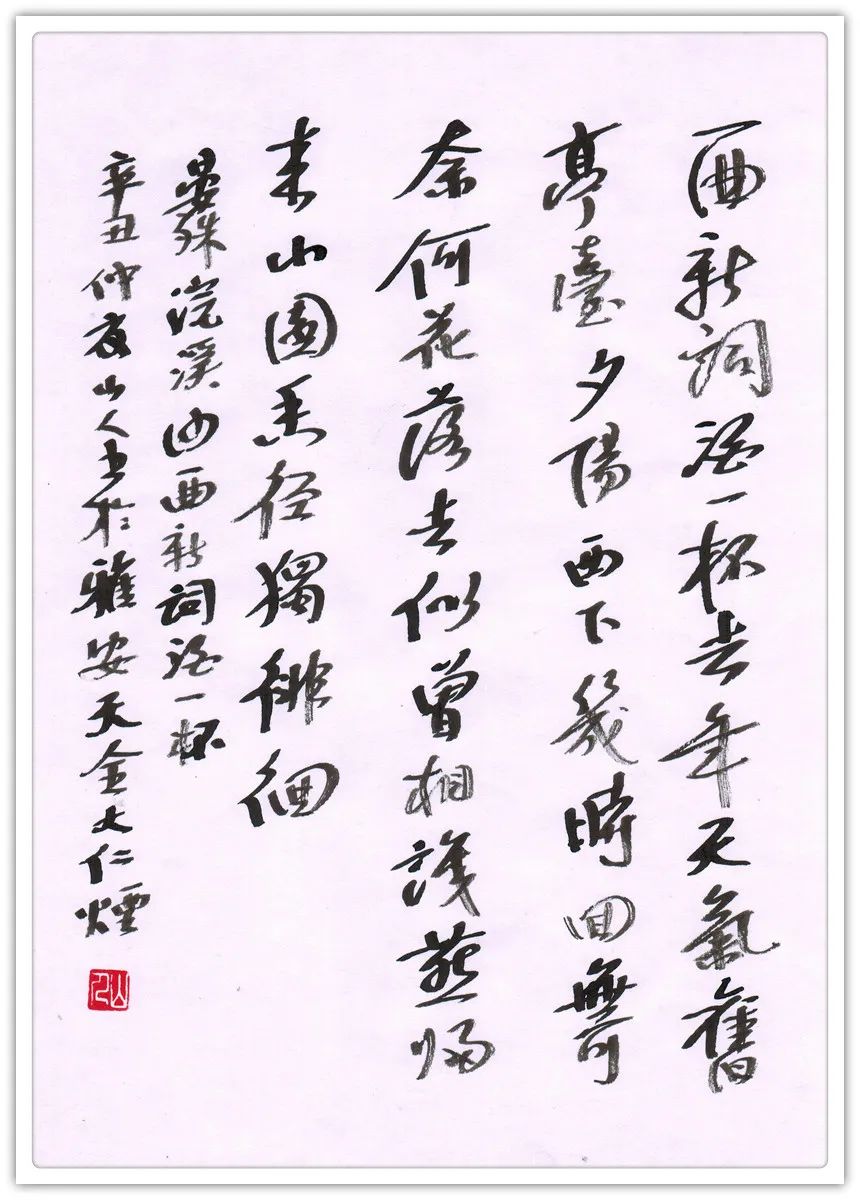 一曲新詞酒一杯去年天氣舊
亭臺夕陽西下幾時回無可
奈何花落去似曾相識燕歸
來小園香徑獨徘徊
晏殊浣溪沙一曲新詞酒一杯
辛丑仲夏山人書於雅安天全大仁煙
山人